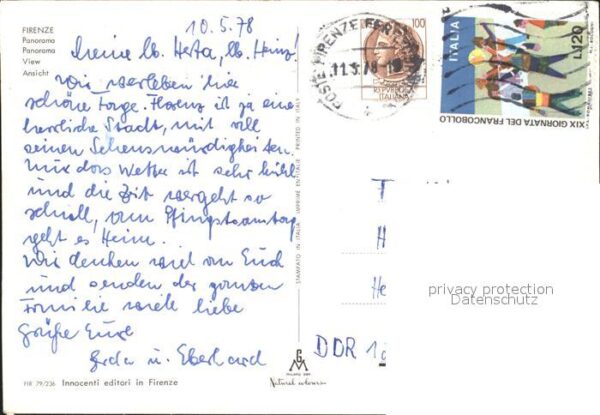 10.5.78
FIRENZE
Panorama
Panorama
View
Ansicht
Meine lb. Herta, lb. Heinz!
Wir verleben hier
schöne Tage. Florenz ist ja eine
herrliche Stadt, mit all
seinen Sehenswürdigkeiten.
Nur das Wetter ist sehr kühl
und die Zeit vergeht so
schnell, am Pfingstsamstag
geht es Heim.
Wir denken viel an Euch
und senden der ganzen
Familie viele liebe
Grüße Eure
Gerda u. Eberhard
FIR 79/236 Innocenti editori in Firenze
STAMPATO IN ITALIA IMPRIMÉ EN ITALIE PRINTED IN ITALY
MILANO
Natural colours
POSTE FIRENZE FERR
11.5.78
100
ITALIANA
ITALIA
L.120
XIX GIORNATA DEL FRANCOBOLLO
T
H
He
DDR
privacy protection
Datenschutz